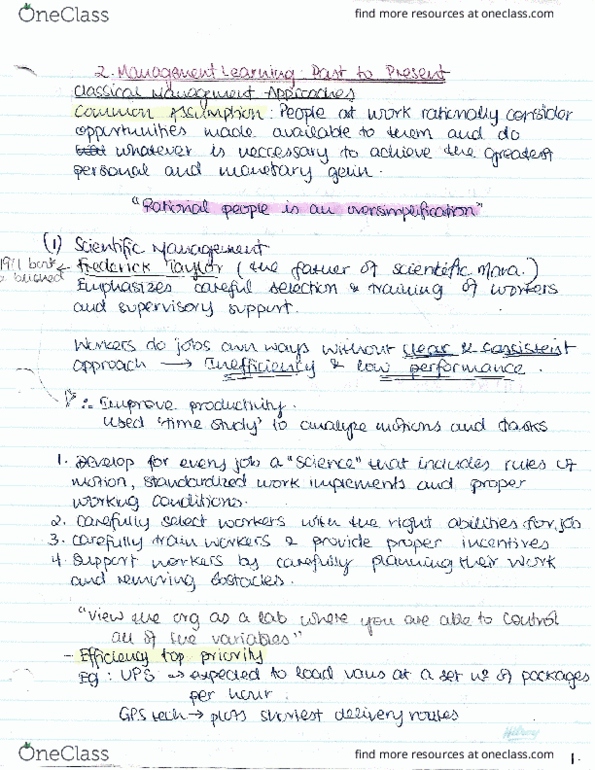 OneClass
find more resources at oneclass.com
2. Management Learning Past to Present
Classical Management Approaches
Common Assumption: People at work rationally consider
opportunities made available to them and do
whatever is neccessary to achieve the greatest
personal and monetary gain.
"Rational people is an oversimplification"
(1) Scientific Management
1911 book
Frederick Taylor (the father of scientific mana.)
Emphasizes careful selection & training of workers
and supervisory support.
Workers do jobs own ways without clear & consistent
approach → Inefficiency & low performance.
∴ Improve productivity.
Used 'time study' to analyze motions and tasks
1. Develop for every job a "science" that includes rules of
motion, standardized work implements and proper
working conditions.
2. Carefully select workers with the right abilities for job
3. Carefully train workers & provide proper incentives
4. Support workers by carefully planning their work
and removing obstacles.
"View the org as a lab where you are able to control
all of the variables"
- Efficiency top priority
Eg: UPS → expected to load vans at a set no of packages
per hour.
GPS tech → plots shortest delivery routes
1.
OneClass
find more resources at oneclass.com